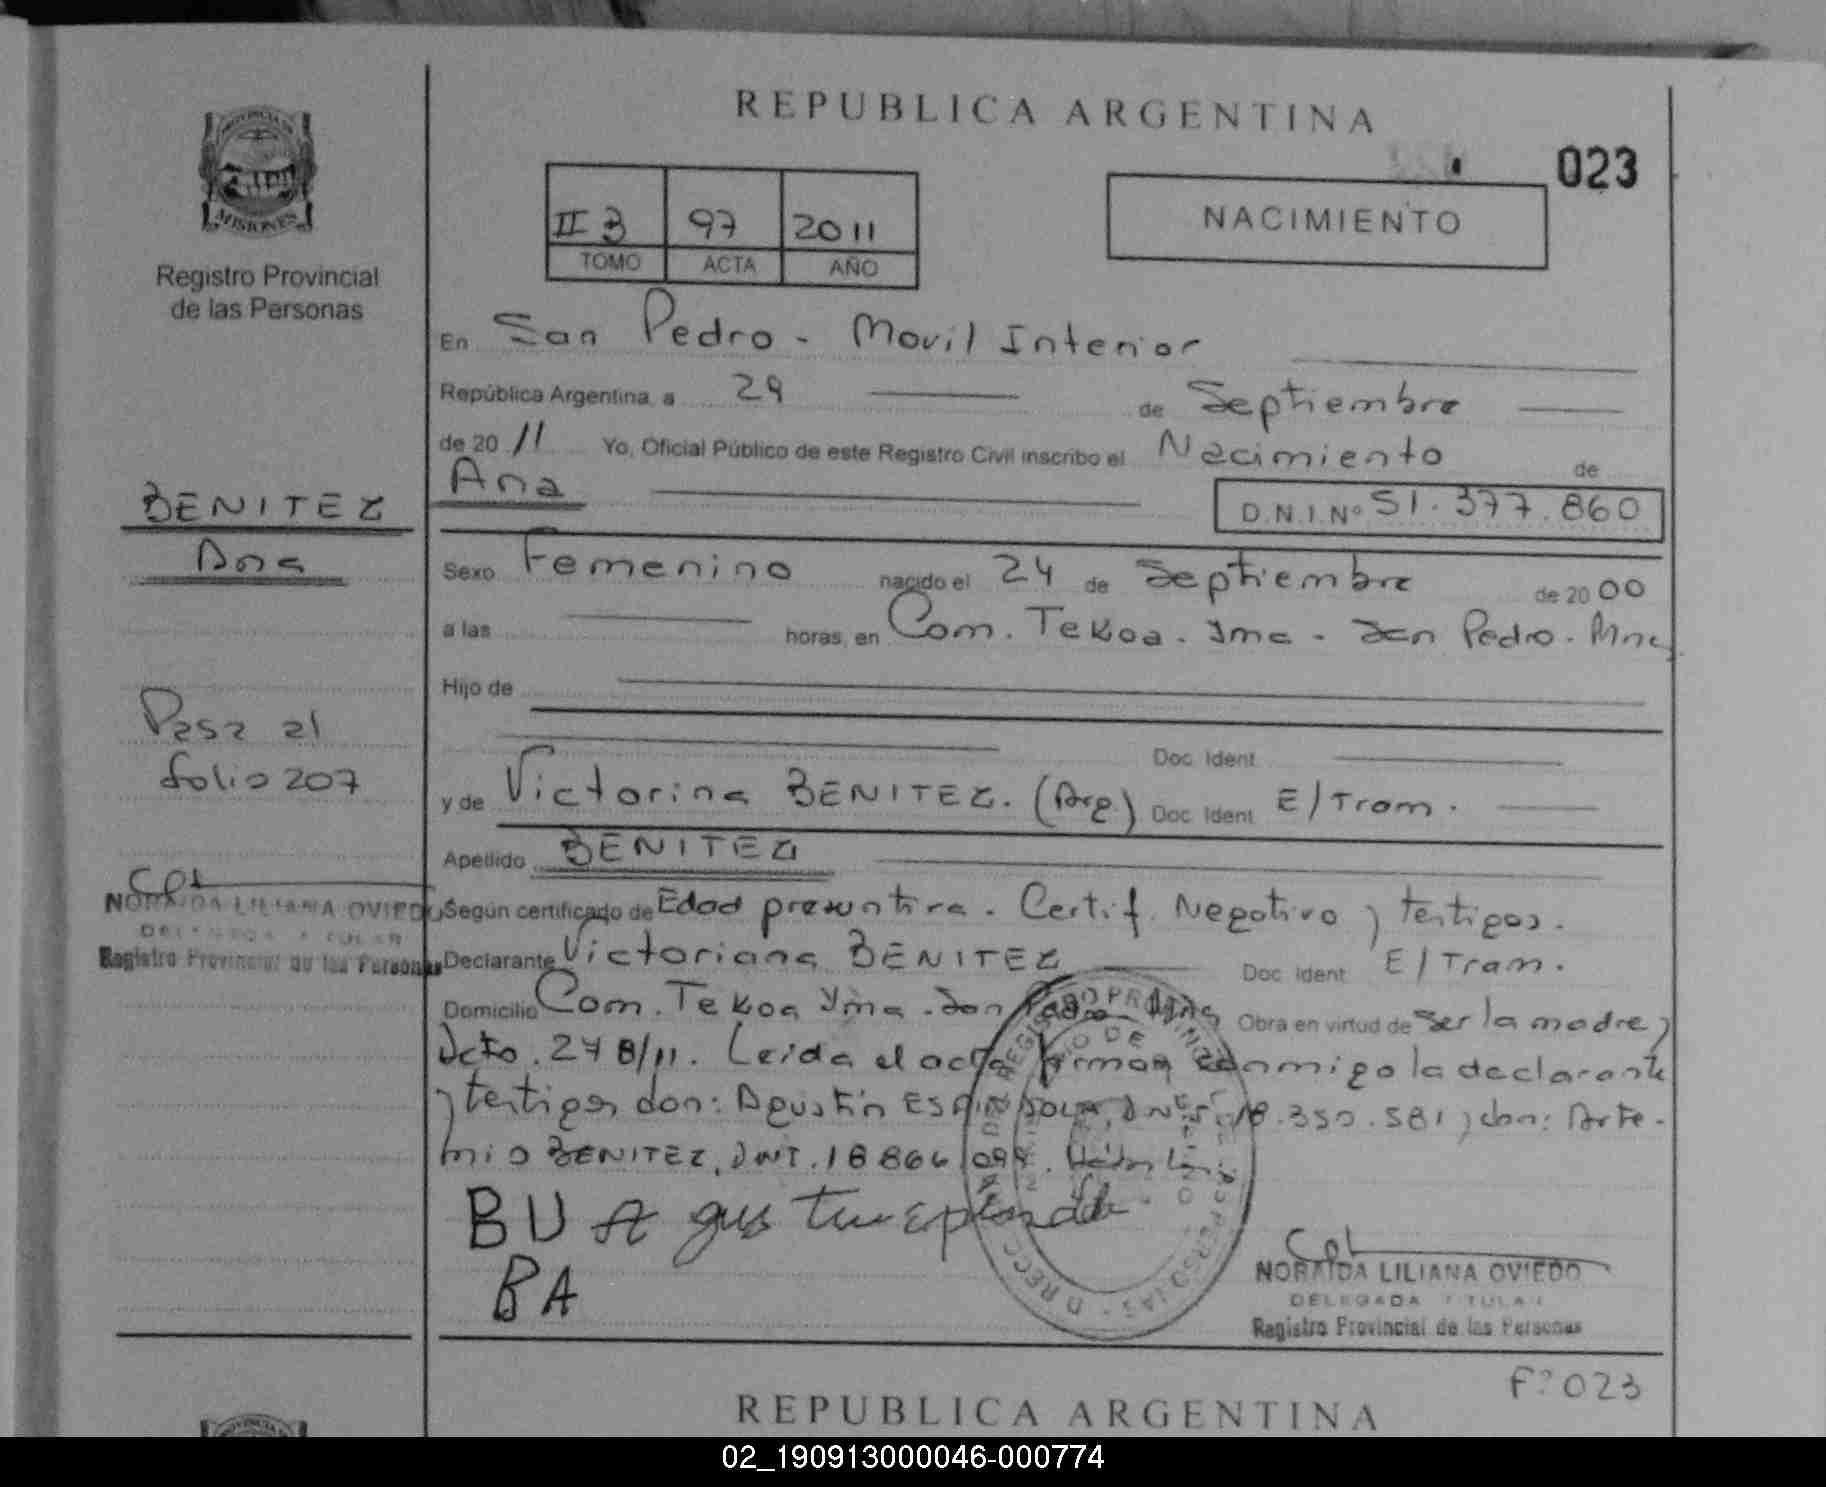 REPUBLICA ARGENTINA
023
PROVINCIA DE
MISIONES
Registro Provincial
de las Personas
II 3 97 2011
TOMO ACTA AÑO
NACIMIENTO
En San Pedro - Movil Interior
República Argentina, a 29 de Septiembre
de 20 11 Yo, Oficial Público de este Registro Civil inscribo el Nacimiento de
Ana D.N.I.Nº 51.377.860
BENITEZ
Ana
Sexo Femenino nacido el 24 de Septiembre de 20 00
a las horas, en Com. Tekoa - Yma - San Pedro - Mnes
Hijo de
Doc. Ident
Pasa al
folio 207
y de Victorina BENITEZ. (Arg.) Doc. Ident E/Tram.
Apellido BENITEZ
Cpl
NORAIDA LILIANA OVIEDO
DELEGADA TITULAR
Registro Provincial de las Personas
Según certificado de Edad presuntiva. Certif. Negativo y testigos.
Declarante Victoriana BENITEZ Doc. Ident E/Tram.
Domicilio Com. Tekoa Yma - San Pedro Mnes Obra en virtud de ser la madre y
Dcto. 248/11. Leida el acta firman conmigo la declarante
y testigos don: Agustín ESPINDOLA, DNI. 18.350.581 y don: Arte-
mio BENITEZ, DNI. 18866
BU
BA
Cpl
NORAIDA LILIANA OVIEDO
DELEGADA TITULAR
Registro Provincial de las Personas
Fº 023
REPUBLICA ARGENTINA
02_190913000046-000774